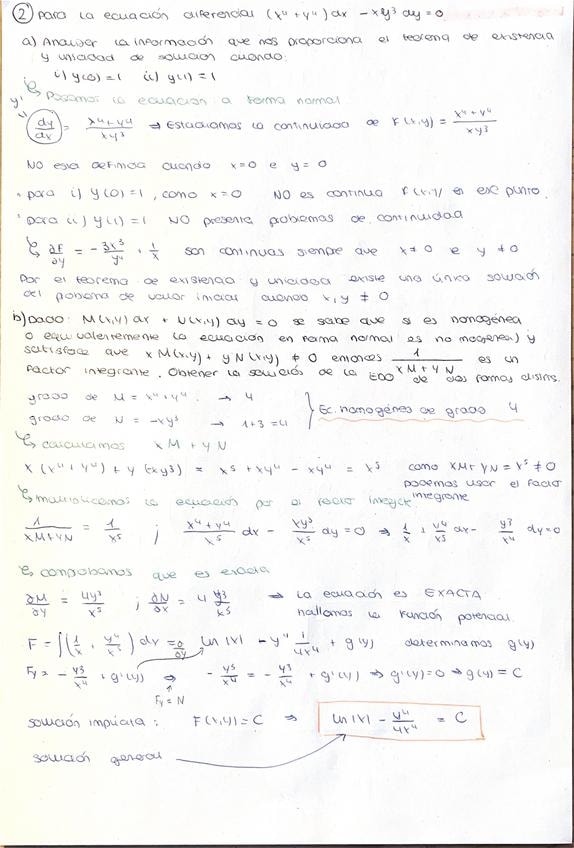 ② para la ecuación diferencial (x⁴ + y⁴) dx - xy³ dy = 0
a) Analizar la información que nos proporciona el teorema de existencia
y unicidad de solución cuando:
i) y(0) = 1 ii) y(1) = 1
↳ Pasamos la ecuación a forma normal
y' = dy/dx = (x⁴ + y⁴)/(xy³) ⇒ Estudiamos la continuidad de F(x,y) = (x⁴ + y⁴)/(xy³)
NO esta definida cuando x=0 e y=0
· para i) y(0)=1, como x=0 NO es continua F(x,y) en ese punto.
· para ii) y(1)=1 NO presenta problemas de continuidad
↳ ∂F/∂y = -3x³/y⁴ + 1/x son continuas siempre que x≠0 e y≠0
Por el teorema de existencia y unicidad existe una única solución
del problema de valor inicial cuando x, y ≠ 0
b) Dado: M(x,y) dx + N(x,y) dy = 0 se sabe que si es homogénea
o equivalentemente la ecuación en forma normal es homogénea) y
satisface que x M(x,y) + y N(x,y) ≠ 0 entonces 1/(xM + yN) es un
Factor integrante. Obtener la solución de la EDO de dos formas distins.
grado de M = x⁴ + y⁴ → 4
grado de N = -xy³ → 1+3=4
Ec. homogénea de grado 4
↳ calculamos xM + yN
x(x⁴ + y⁴) + y(-xy³) = x⁵ + xy⁴ - xy⁴ = x⁵ como xM + yN = x⁵ ≠ 0
podemos usar el factor
integrante
↳ multiplicamos la ecuación por el factor integrte
1/(xM + yN) = 1/x⁵ ; (x⁴ + y⁴)/x⁵ dx - xy³/x⁵ dy = 0 ⇒ 1/x + y⁴/x⁵ dx - y³/x⁴ dy = 0
↳ comprobamos que es exacta
∂M/∂y = 4y³/x⁵ ; ∂N/∂x = 4 y³/x⁵ ⇒ La ecuación es EXACTA
hallamos la función potencial.
F = ∫(1/x + y⁴/x⁵) dx = ln|x| - y⁴ 1/4x⁴ + g(y) determinamos g(y)
∂/∂y
Fy = -y³/x⁴ + g'(y) ⇒ -y³/x⁴ = -y³/x⁴ + g'(y) ⇒ g'(y)=0 ⇒ g(y) = C
Fy = N
solución implícita: F(x,y) = C ⇒ ln|x| - y⁴/4x⁴ = C
solución general